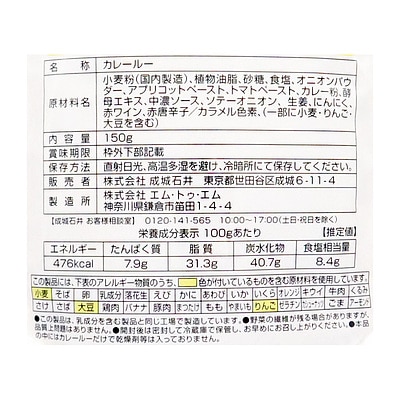 名 称 カレールー
原材料名 小麦粉(国内製造)、植物油脂、砂糖、食塩、オニオンパウ
ダー、アプリコットペースト、トマトペースト、カレー粉、酵
母エキス、中濃ソース、ソテーオニオン、生姜、にんにく、
赤ワイン、赤唐辛子/カラメル色素、(一部に小麦・りんご・
大豆を含む)
内容量 150g
賞味期限 枠外下部記載
保存方法 直射日光、高温多湿を避け、冷暗所にて保存してください。
販売者 株式会社 成城石井 東京都世田谷区成城6-11-4
製造所 株式会社 エム・トゥ・エム
神奈川県鎌倉市笛田1-4-4
【成城石井 お客様相談室】 0120-141-565 10:00~17:00(土日・祝日を除く)
栄養成分表示 100gあたり 【推定値】
エネルギー たんぱく質 脂質 炭水化物 食塩相当量
476kcal 7.9g 31.3g 40.7g 8.4g
この製品には、下表のアレルギー物質のうち、 色が付いているものを含む原材料を使用しています。
小麦 そば 卵 乳成分 落花生 えび かに あわび いか いくら オレンジ キウイ 牛肉 くるみ
さけ さば 大豆 鶏肉 バナナ 豚肉 まつたけ もも やまいも りんご ゼラチン カシューナッツ ごま アーモンド
●この製品は、乳成分を含む製品と同じ工場で製造しています。●野菜の繊維が残る場合がありますが、
品質上問題はありません。●開封後は密封して冷蔵庫で保管し、お早めにお召し上がりください。●本品
の中にはカレールーだけで乾燥剤等は入っておりません。